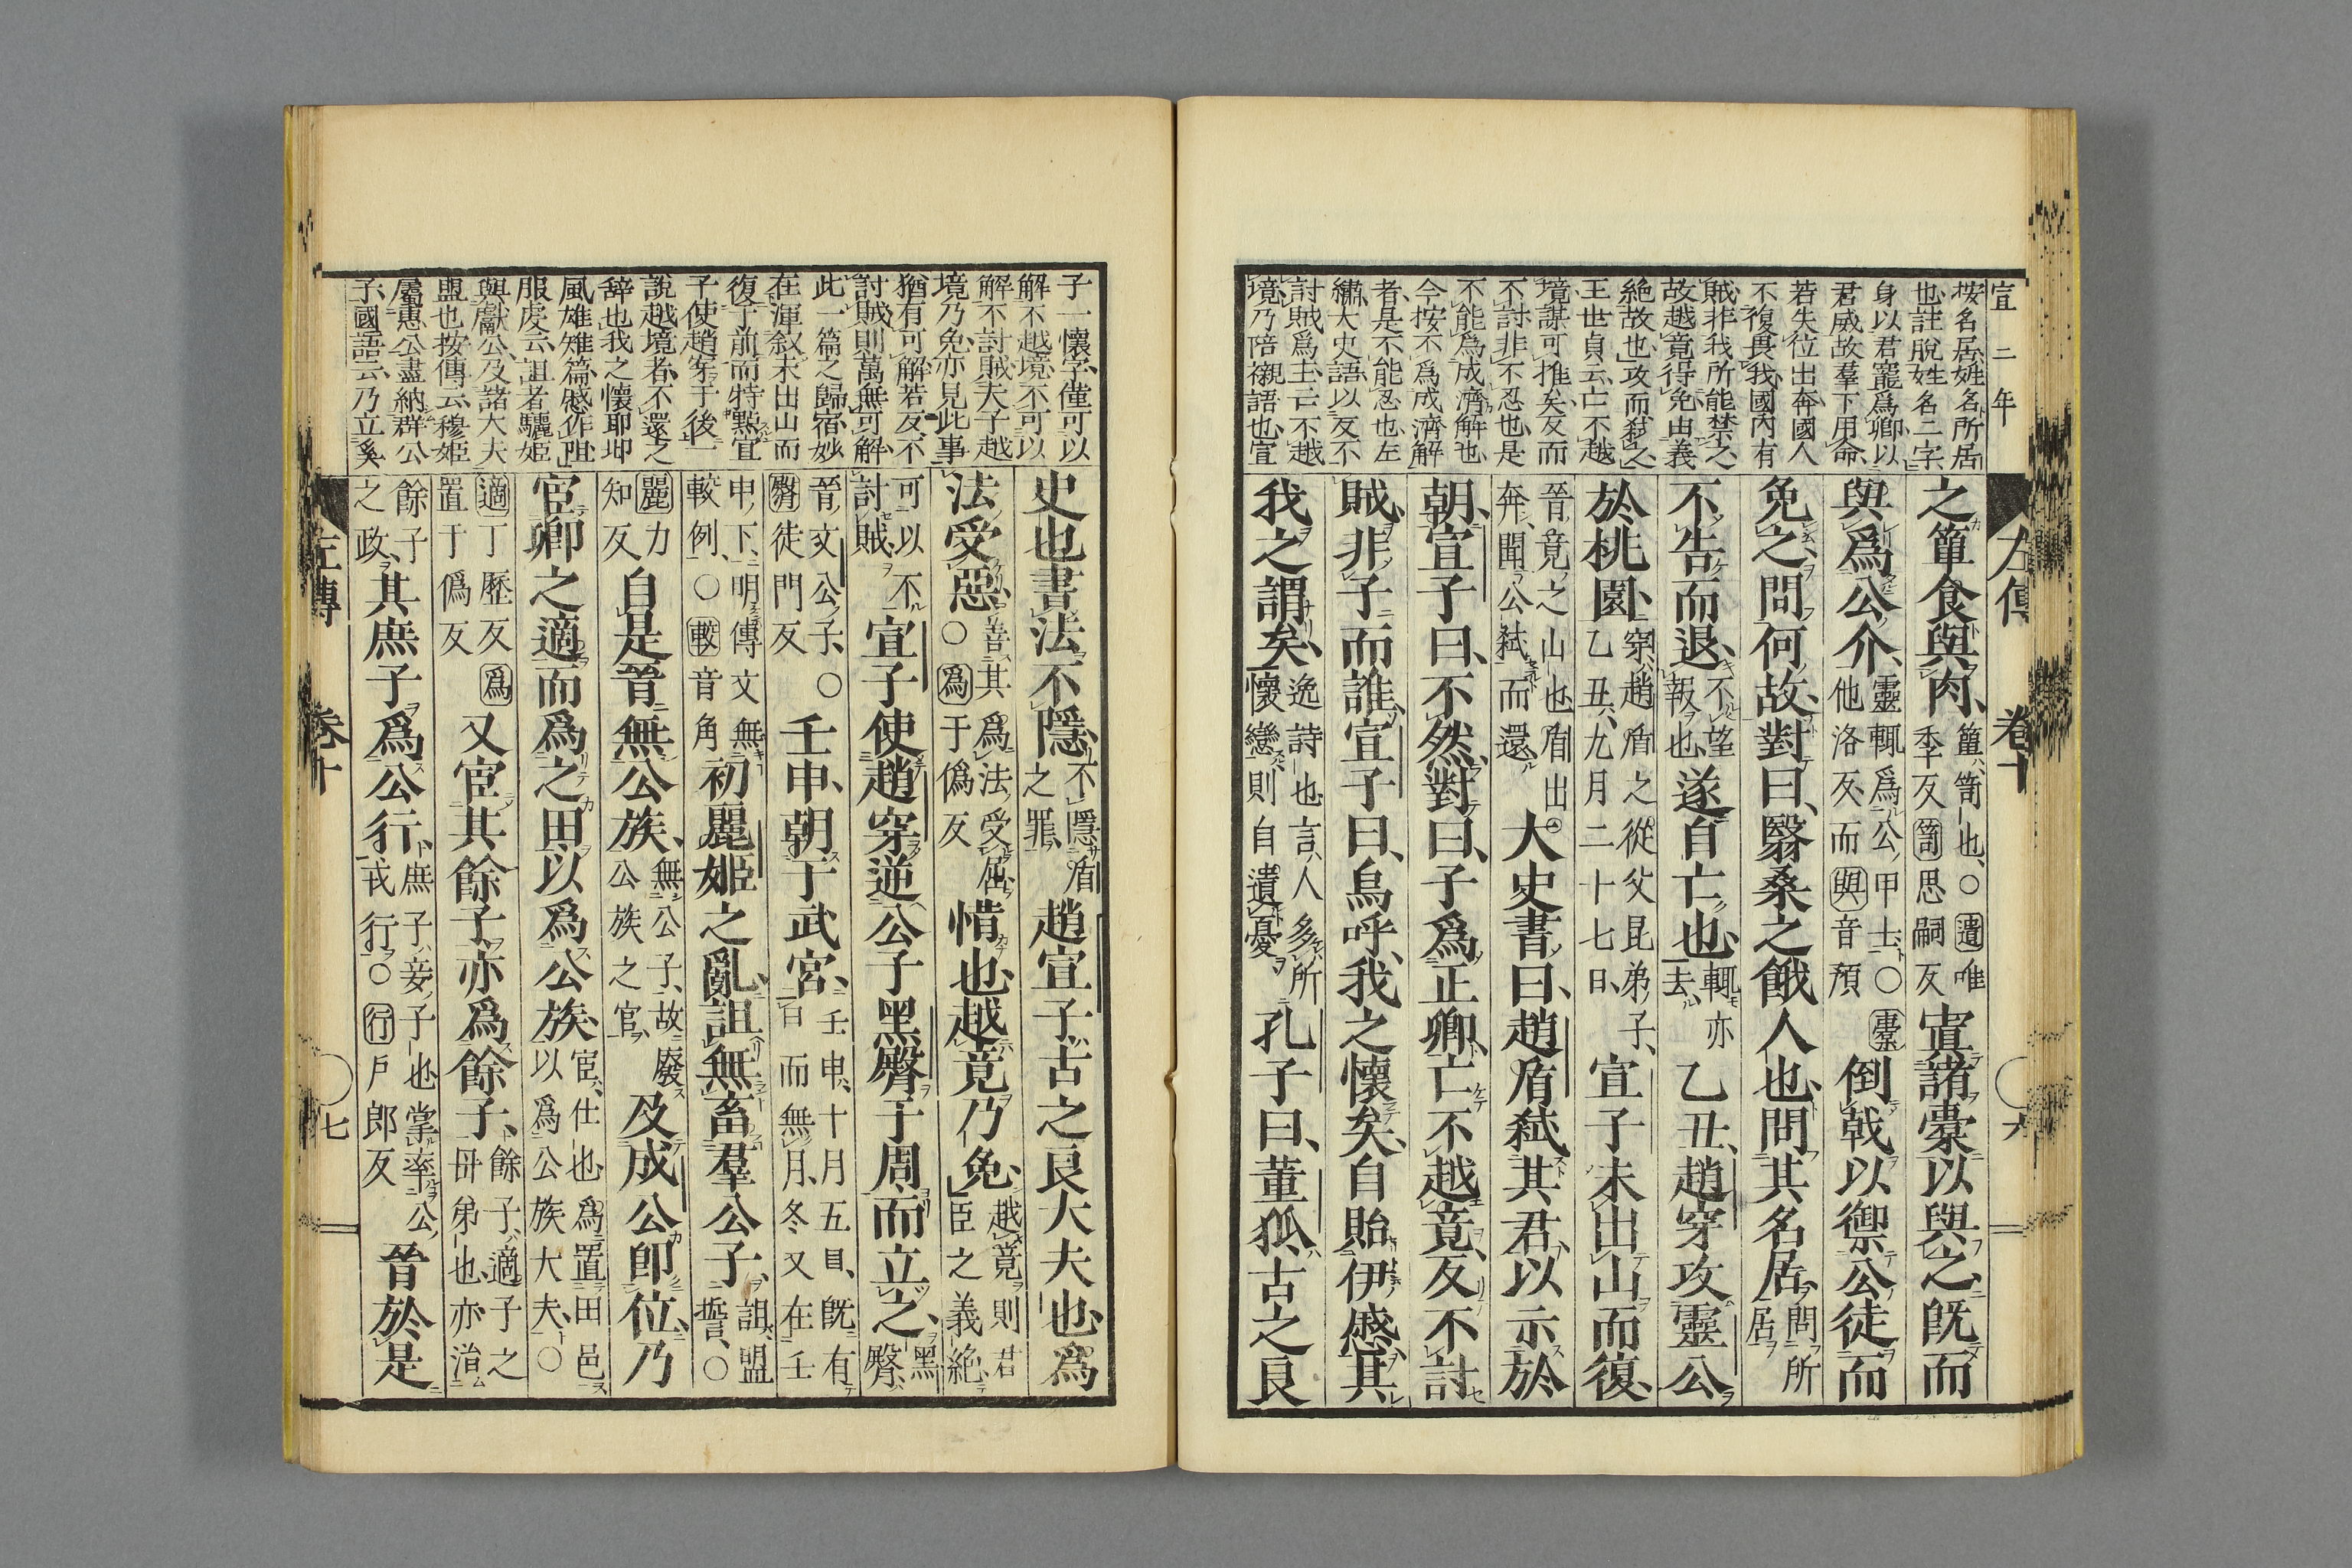 宣二年
左傳 卷十 六
按名居姓名所居
也註脫姓名二字
身以君寵爲卿以
君威故羣下用命
若失位出奔國人
不復畏我國內有
賊非我所能禁之
故越竟得免由義
絕故也攻而弑之
王世貞云亡不越
境謀可推矣反而
不討非不忍也是
不能爲成濟解也
今按不爲成濟解
者是不能忍也左
繡大史語以反不
討賊爲主亡不越
境乃陪襯語也宣
之簞食與肉、簞笥也、○遺唯季反笥思嗣反寘諸橐以與之、旣而
與爲公介、靈輒爲公甲士、○橐他洛反、而與音預倒戟以禦公徒而
免之、問何故、對曰、翳桑之餓人也、問其名居、問所居不告而退、不望報也、遂自亡也、輒亦去乙丑、趙穿攻靈公
於桃園、穿趙盾之從父昆弟子、乙丑、九月二十七日、宣子未出山而復、
晉竟之山也、盾出奔、聞公弑而還大史書曰、趙盾弑其君、以示於
朝、宣子曰、不然、對曰、子爲正卿、亡不越竟、反不討
賊、非子而誰、宣子曰、烏呼、我之懷矣、自貽伊慼、其
我之謂矣、逸詩也言人多所懷戀則自遺憂孔子曰、董狐、古之良
子一懷字僅可以
解不越境不可以
解不討賊夫子越
境乃免亦見此事
猶有可解若反不
討賊則萬無可解
此一篇之歸宿妙
在渾敘未出山而
復于前而特點宣
子使趙穿于後一
說越境者不還之
辭也我之懷耶卽
風雄雉篇慼作阻
服虔云詛者驪姬
與獻公及諸大夫
盟也按傳云穆姬
屬惠公盡納群公
子國語云乃立奚
史也書法不隱、不隱盾之罪、趙宣子古之良大夫也、爲
法受惡、善其爲法受屈、○爲于僞反惜也、越竟乃免、越竟則君臣之義絕、
可以不討賊宣子使趙穿逆公子黑臀于周、而立之、黑臀
晉文公子、○臀徒門反壬申、朝于武宮、壬申、十月五日、旣有日而無月、冬又在壬
申下、明傳文無較例、○較音角初麗姬之亂、詛無畜羣公子、詛盟誓、○
麗力知反自是晉無公族、無公子、故廢公族之官、及成公卽位、乃
宦卿之適而爲之田、以爲公族、宦仕也爲置田邑以爲公族大夫、○
適丁歷反爲置于僞反又宦其餘子、亦爲餘子、餘子、適子之母弟也、亦治
餘子之政、其庶子爲公行、庶子妾子也掌率公戎行、○行戶郎反晉於是
左傳 卷十 七